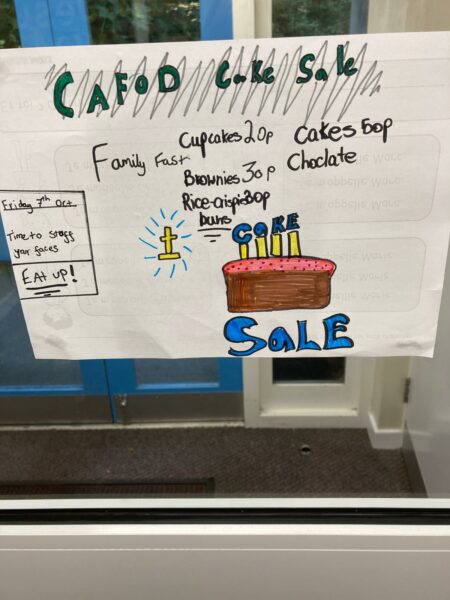 CAFOD Cake Sale
Family Fast
Cupcakes 20p
Brownies 30p
Rice-crispie 30p
buns
Cakes 50p
Choclate
Friday 7th Oct
Time to stuff
your faces
EAT UP!
CAKE
SALE